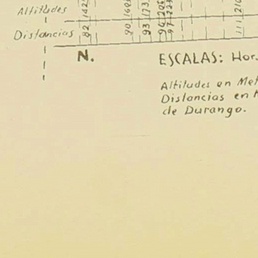 Altitudes
Distancias
N.
ESCALAS: Hor.
Altitudes en Met
Distancias en M
de Durango.